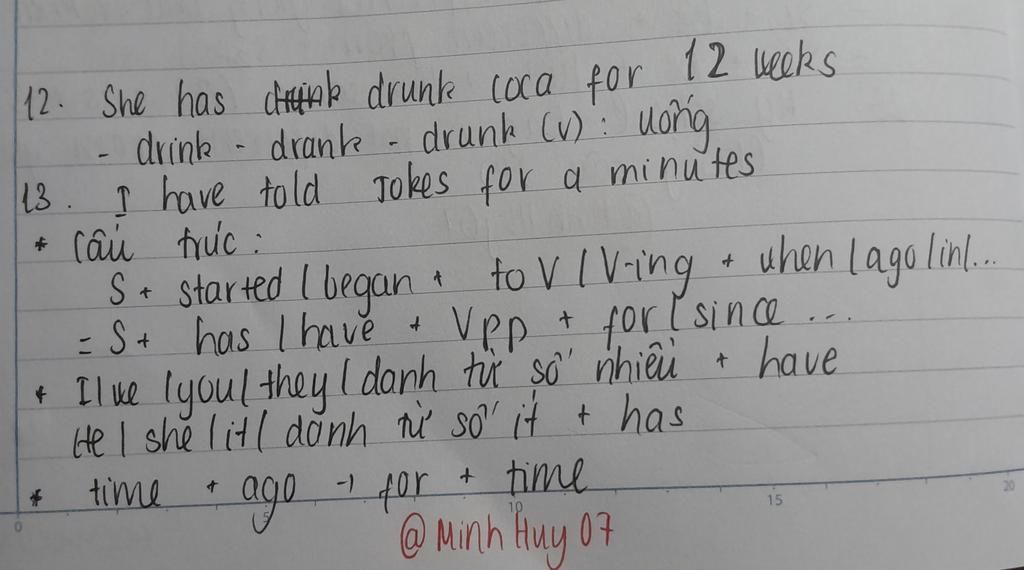 12. She has drink drunk coca for 12 weeks
- drink - drank - drunk (v) : uống
13. I have told Jokes for a minutes
* Cấu trúc :
S + started / began + to V / V-ing + when / ago / in / ...
= S + has / have + Vpp + for / since ...
* I / we / you / they / danh từ số nhiều + have
He / she / it / danh từ số ít + has
* time + ago → for + time
0 5 10 15 20
@ Minh Huy 07